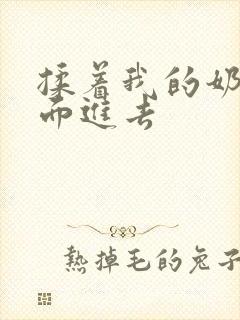 揉着我的奶
而進去
熱掉毛的兔子